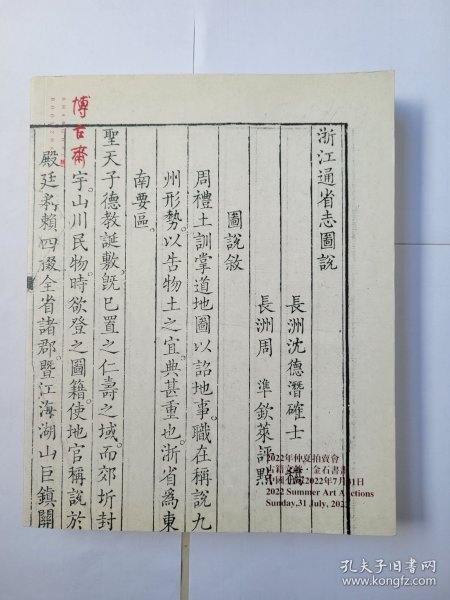 博古斋
浙江通省志圖說
長洲沈德潛確士 稿
長洲周 準欽萊評點
圖說敘
周禮土訓掌道地圖以詔地事。職在稱說九
州形勢。以告物土之宜。典甚重也。浙省為東
南要區。
聖天子德教誕敷。既已置之仁壽之域。而郊圻封
宇。山川民物。時欲登之圖籍。使地官稱說於
殿廷。爰賴四掇全省諸郡。暨江海湖山巨鎮關
2022年仲夏拍賣會
古籍文獻·金石書畫
2022年7月31日
2022 Summer Art Auctions
Sunday,31 July, 2022
孔夫子旧书网
www.kongfz.com